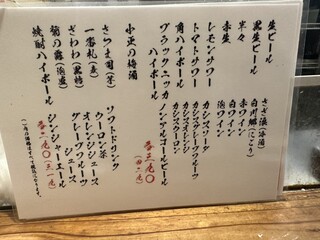 生ビール
黒生ビール
半々
赤生
レモンサワー
トマトサワー
角ハイボール
ブラックニッカ
ハイボール
小正の梅酒
さつま国(芋)
一番札(麦)
ざわわ(黒糖)
菊の露(泡盛)
焼酎ハイボール
白川郷(にごり)
赤ワイン
白ワイン
泡ワイン
カシスソーダ
カシスオレンジ
カシスグレープフルーツ
カシスウーロン
ノンアルコールビール
各三九〇
ソフトドリンク
ウーロン茶
オレンジジュース
グレープフルーツ
ジュース
ジンジャーエール
各二九〇